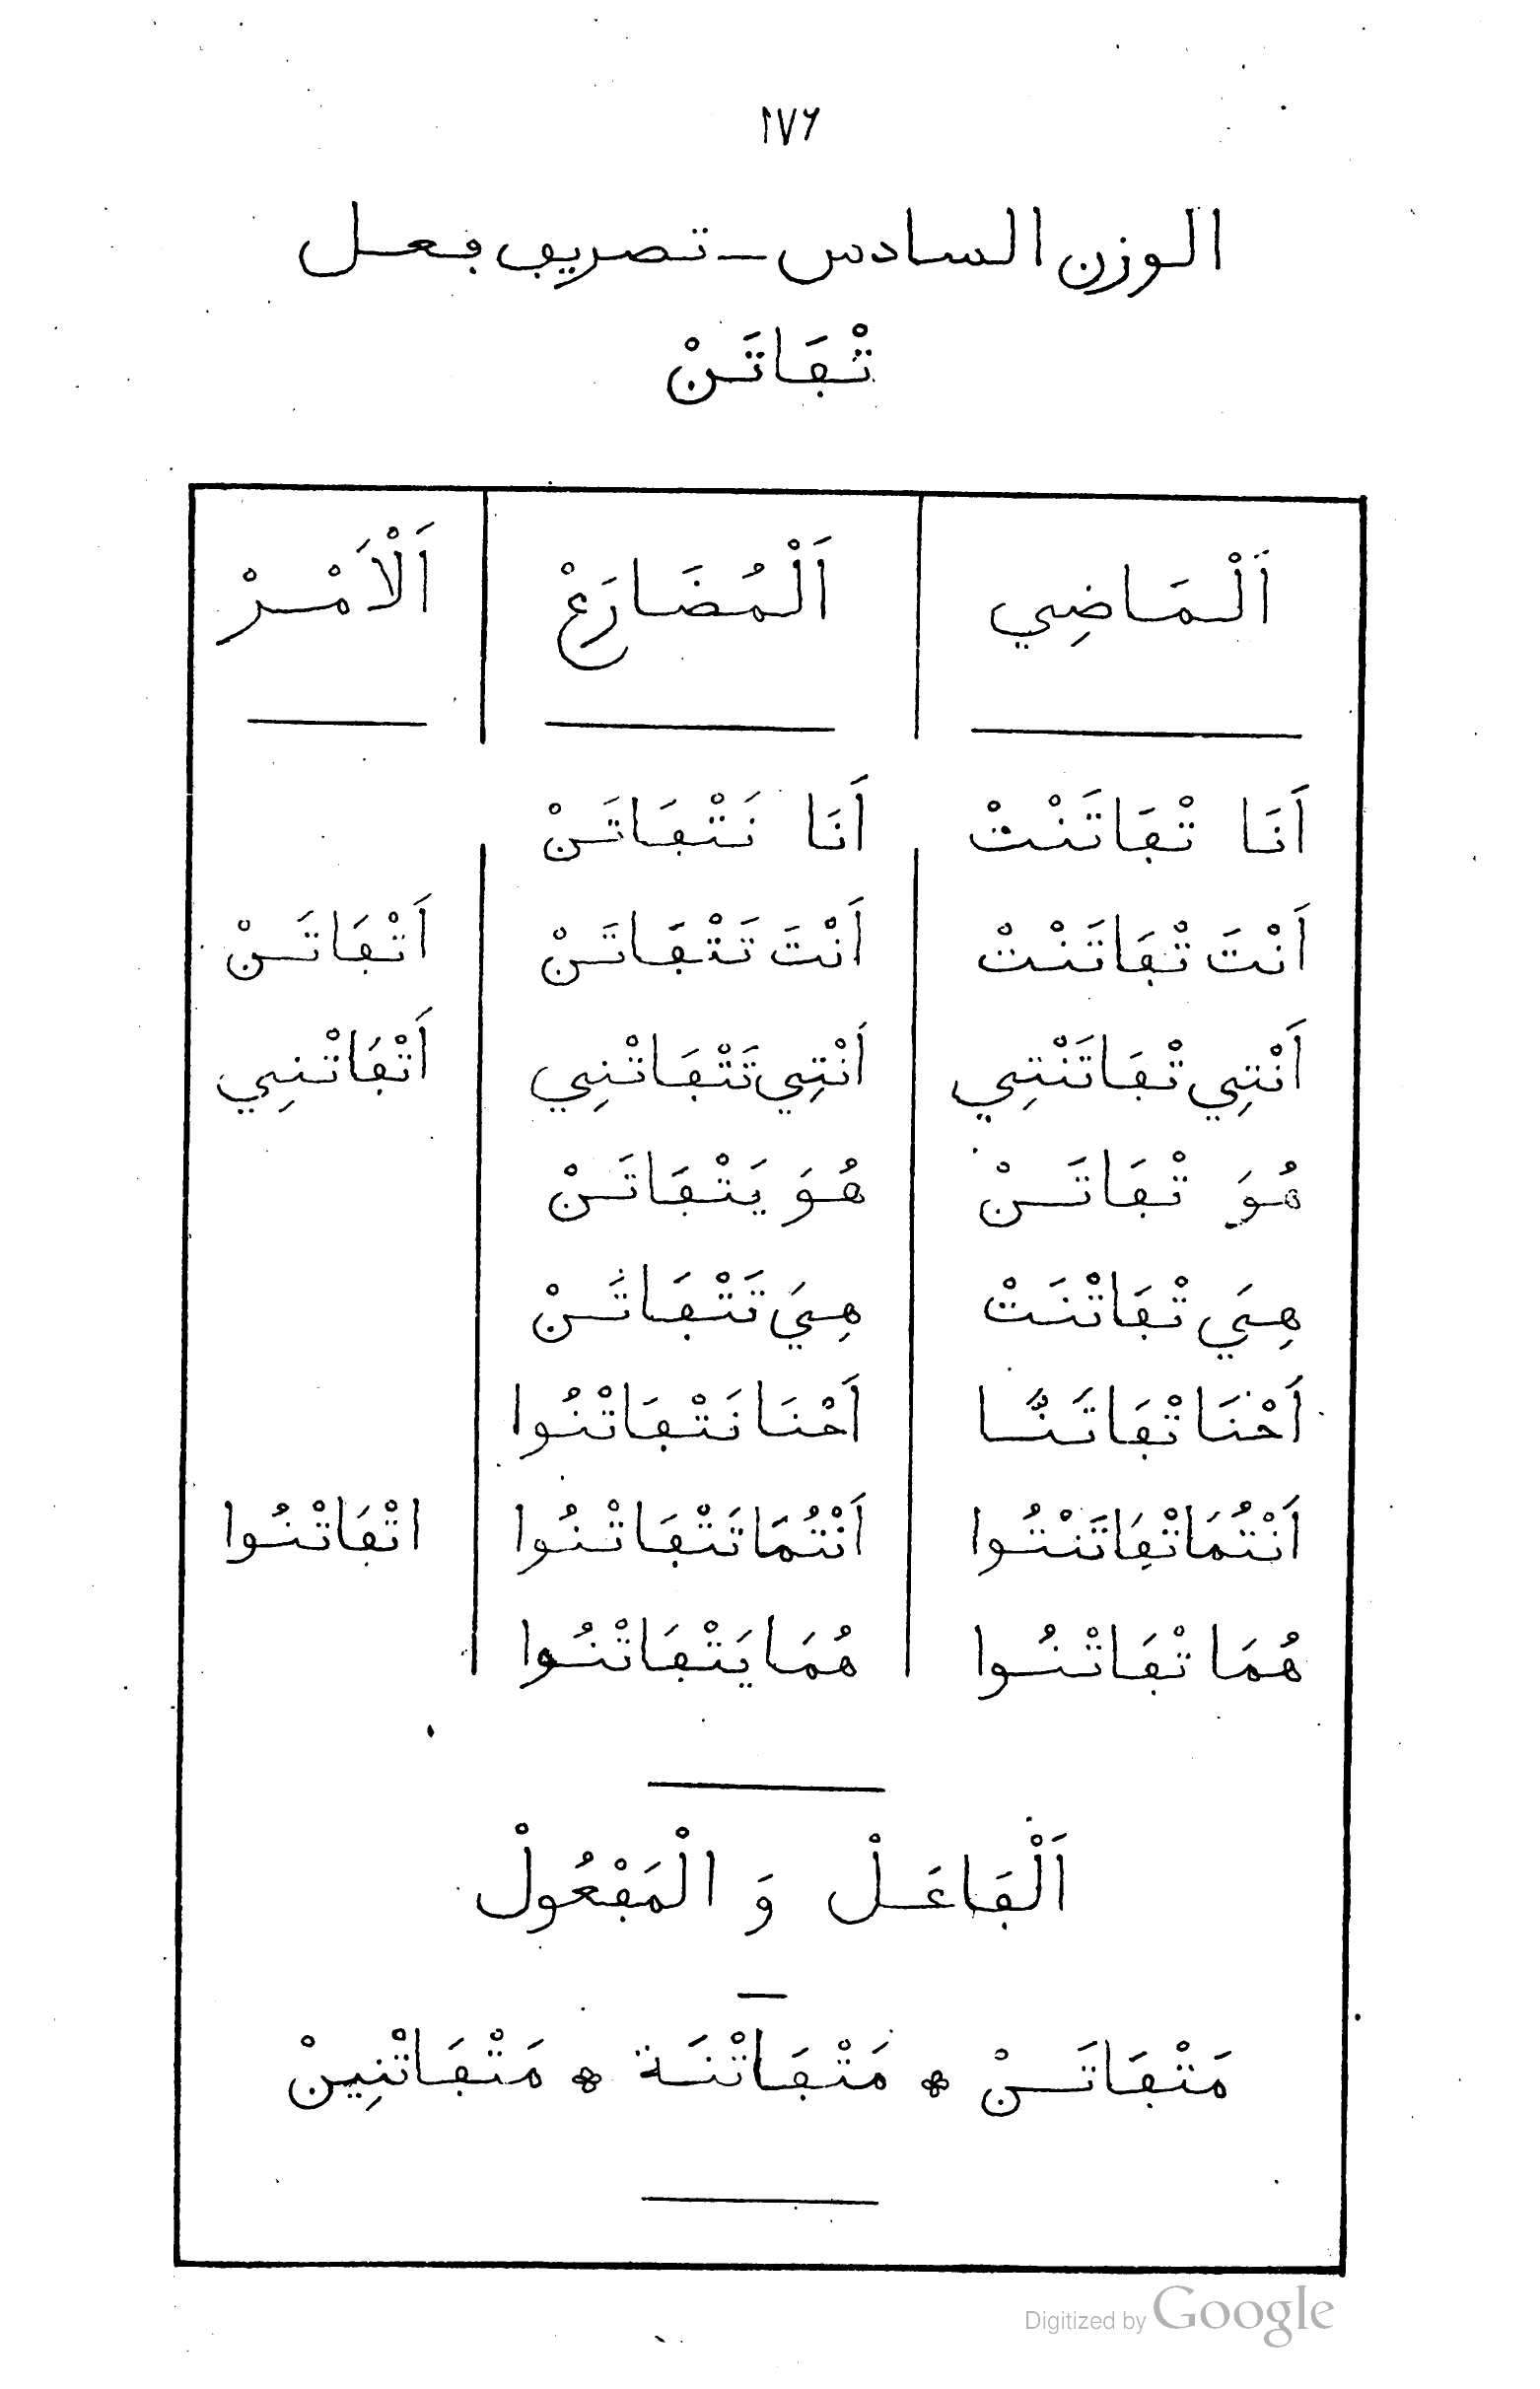 ١٧٦
الوزن السادس - تصريف فعل
تْفَاتَنْ
اَلْمَاضِي اَلْمُضَارَعْ اَلْاَمْرْ
اَنَا تْفَاتَنْتْ اَنَا نَتْفَاتَنْ
اَنْتَ تْفَاتَنْتْ اَنْتَ تَتْفَاتَنْ اَتْفَاتَنْ
اَنْتِي تْفَاتَنْتِي اَنْتِي تَتْفَاتْنِي اَتْفَاتْنِي
هُوَ تْفَاتَنْ هُوَ يَتْفَاتَنْ
هِيَ تْفَاتْنَتْ هِيَ تَتْفَاتَنْ
اَحْنَا تْفَاتَنَّا اَحْنَا نَتْفَاتْنُوا
اَنْتُمَا تْفَاتَنْتُوا اَنْتُمَا تَتْفَاتْنُوا اتْفَاتْنُوا
هُمَا تْفَاتْنُوا هُمَا يَتْفَاتْنُوا
اَلْفَاعَلْ وَ الْمَفْعُولْ
مَتْفَاتَنْ * مَتْفَاتْنَة * مَتْفَاتْنِينْ
Digitized by Google